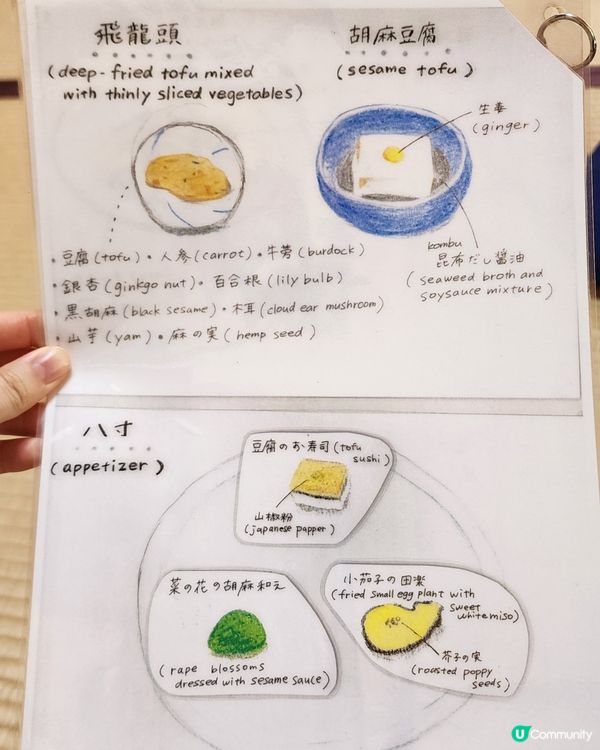 飛龍頭
(deep-fried tofu mixed
with thinly sliced vegetables)
胡麻豆腐
(sesame tofu)
生姜
(ginger)
kombu
昆布だし醤油
(seaweed broth and
soysauce mixture)
・豆腐(tofu)・人参(carrot)・牛蒡(burdock)
・銀杏(ginkgo nut)・百合根(lily bulb)
・黒胡麻(black sesame)・木耳(cloud ear mushroom)
・山芋(yam)・麻の実(hemp seed)
八寸
(appetizer)
豆腐のお寿司(tofu
sushi)
山椒粉
(japanese papper)
菜の花の胡麻和え
(rape blossoms
dressed with sesame sauce)
小茄子の田楽
(fried small egg plant with
sweet
white miso)
芥子の実
(roasted poppy
seeds)
U Community